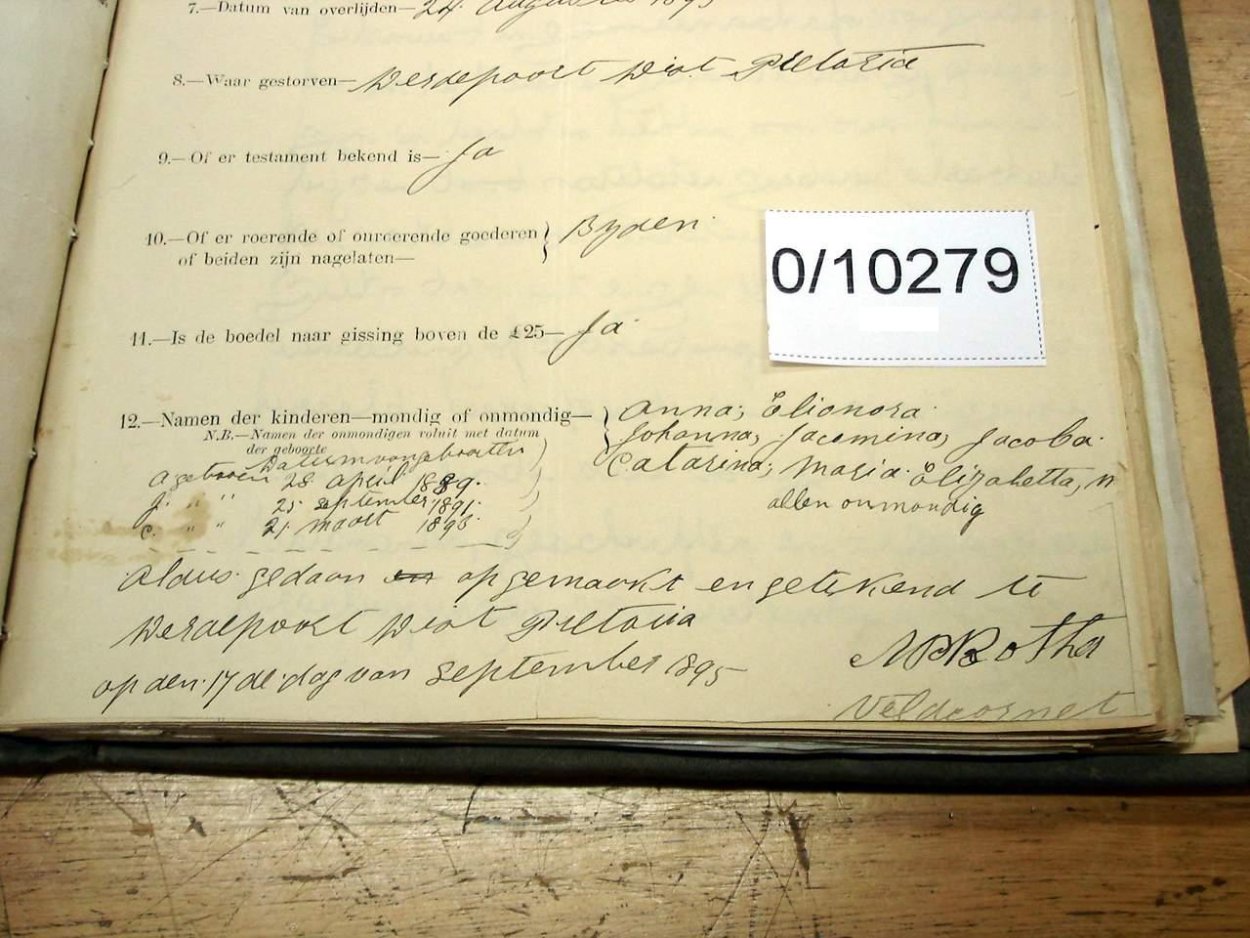 7.—Datum van overlijden— 24 Augustus 1895
8.—Waar gestorven— Derdepoort Dist Pretoria
9.—Of er testament bekend is— Ja
10.—Of er roerende of onroerende goederen } Byden
of beiden zijn nagelaten—
0/10279
11.—Is de boedel naar gissing boven de £25— Ja
12.—Namen der kinderen—mondig of onmondig— } Anna; Elionora
N.B.—Namen der onmondigen voluit met datum } Johanna, Jacomina, Jacoba
der geboorte Datum van geboorten } Catarina; Maria Elizabetta,
A geboren 28 April 1889.
allen onmondig
J. " " 25 September 1891.
C. " " 21 Maart 1893.
Aldus gedaan en opgemaakt en getekend te
Derdepoort Dist Pretoria
op den 17 de dag van September 1895
Botha
Veldcornet